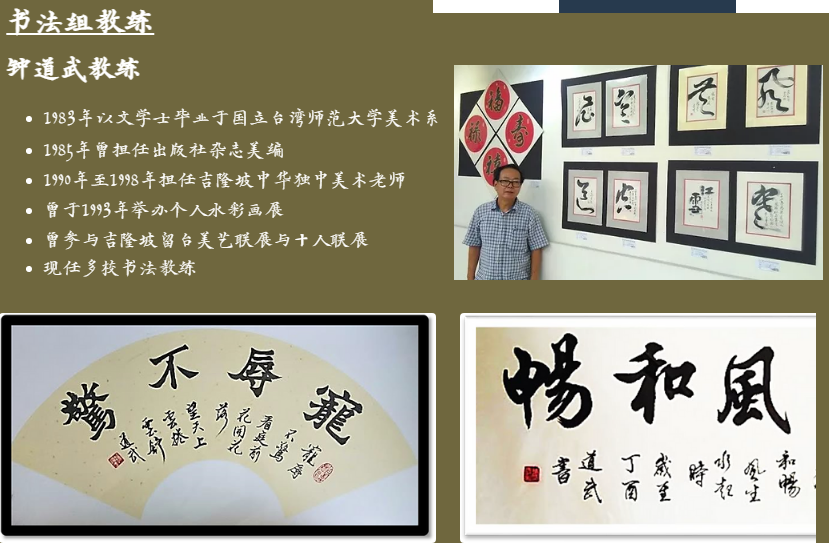 书法组教练
钟道武教练
1983年以文学士毕业于国立台湾师范大学美术系
1985年曾担任出版社杂志美编
1990年至1998年担任吉隆坡中华独中美术老师
曾于1993年举办个人水彩画展
曾参与吉隆坡留台美艺联展与十人联展
现任多校书法教练
福
祿
壽
禧
寵辱不驚
寵辱
不驚
看庭前
花開花
落
望天上
雲捲
雲舒
道武
風和暢
和暢
風生
水起
時
歲至
丁酉
道武
書